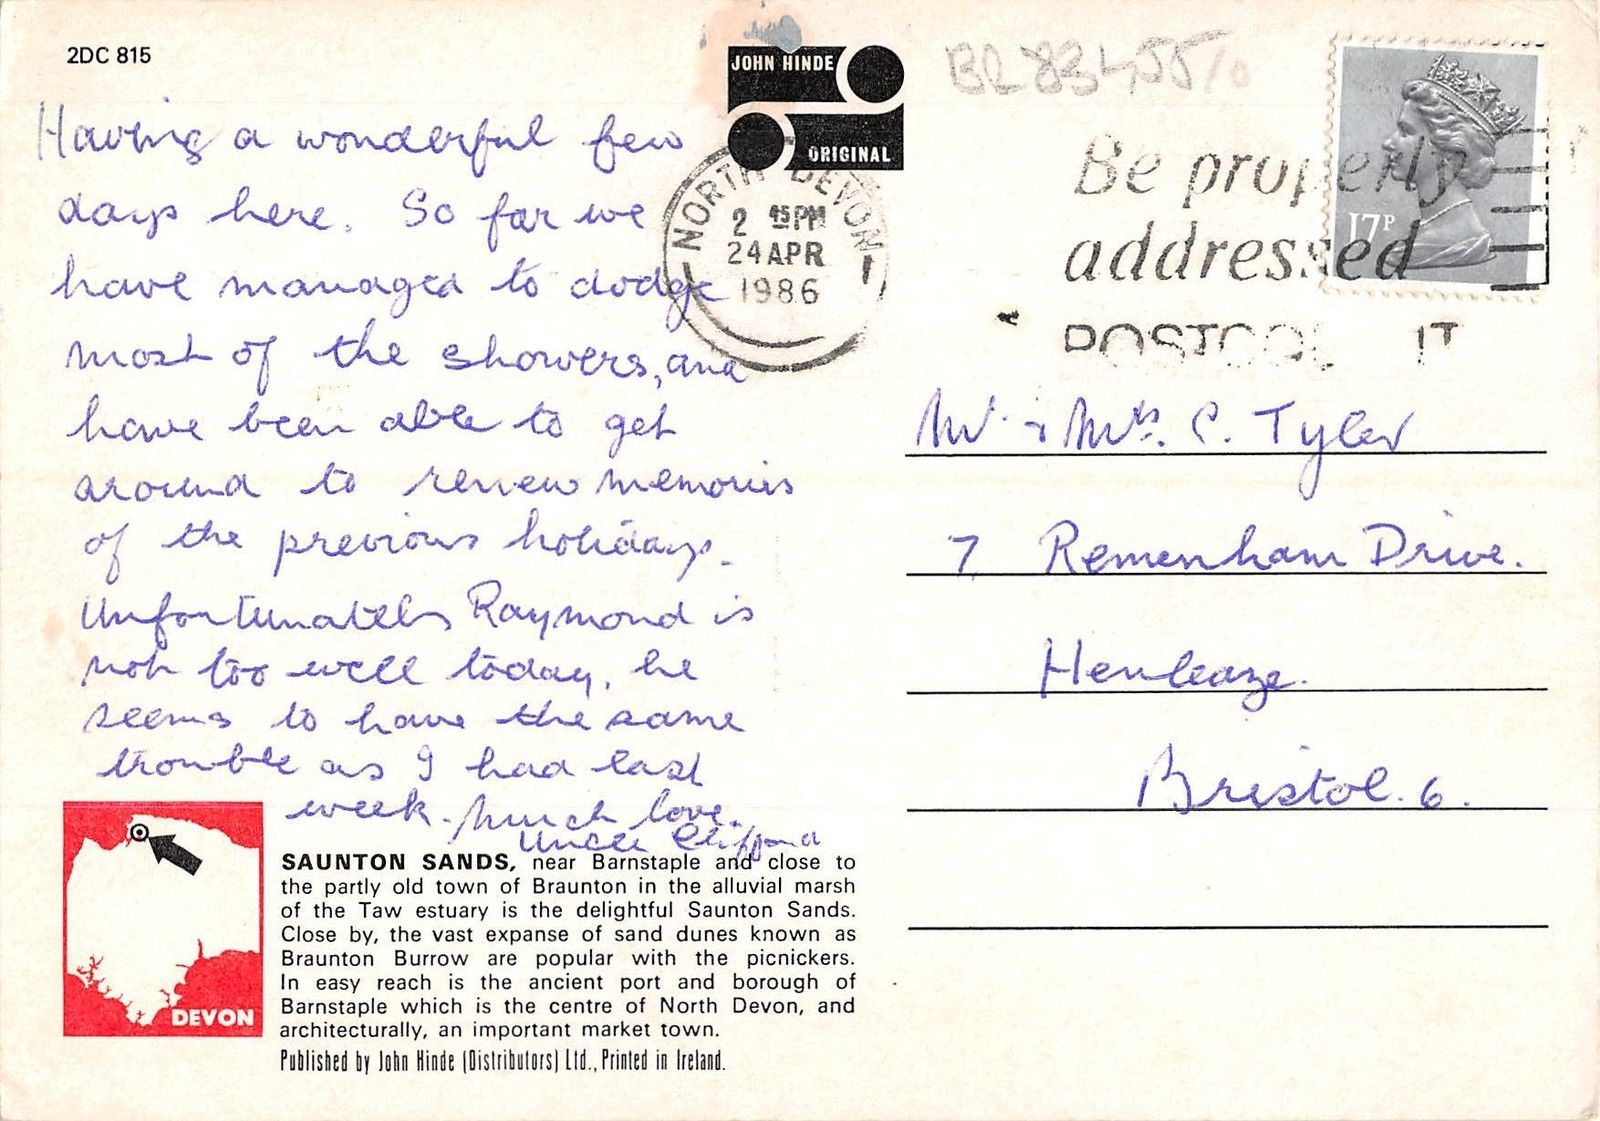 2DC 815
JOHN HINDE
ORIGINAL
Having a wonderful few
days here. So far we
have managed to dodge
most of the showers, and
have been able to get
around to renew memories
of the previous holidays.
Unfortunately Raymond is
not too well today, he
seems to have the same
trouble as I had last
week. Much love.
Uncle Clifford
NORTH DEVON
2 45PM
24 APR
1986
Be properly
addressed
POSTCODE IT
17P
Mr. & Mrs. C. Tyler
7 Remenham Drive.
Henleaze.
Bristol. 6.
DEVON
SAUNTON SANDS, near Barnstaple and close to
the partly old town of Braunton in the alluvial marsh
of the Taw estuary is the delightful Saunton Sands.
Close by, the vast expanse of sand dunes known as
Braunton Burrow are popular with the picnickers.
In easy reach is the ancient port and borough of
Barnstaple which is the centre of North Devon, and
architecturally, an important market town.
Published by John Hinde (Distributors) Ltd., Printed in Ireland.